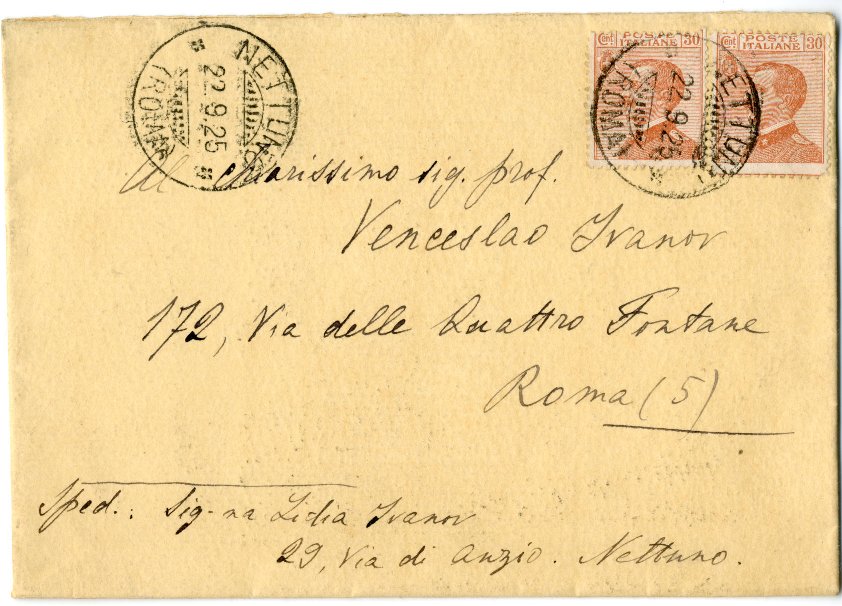 NETTUNO
22.9.25
(ROMA)
Cent POSTE 30
ITALIANE
Cent POSTE 30
ITALIANE
NETTUNO
22.9.25
(ROMA)
Al chiarissimo sig. prof.
Venceslao Ivanov
172, Via delle Quattro Fontane
Roma (5)
Sped.: Sig-na Lidia Ivanov
29, Via di Anzio. Nettuno.